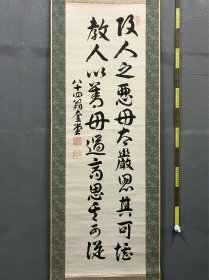 攻人之惡毋太嚴思其可堪
教人以善毋過高思其可從
八十四翁金堂